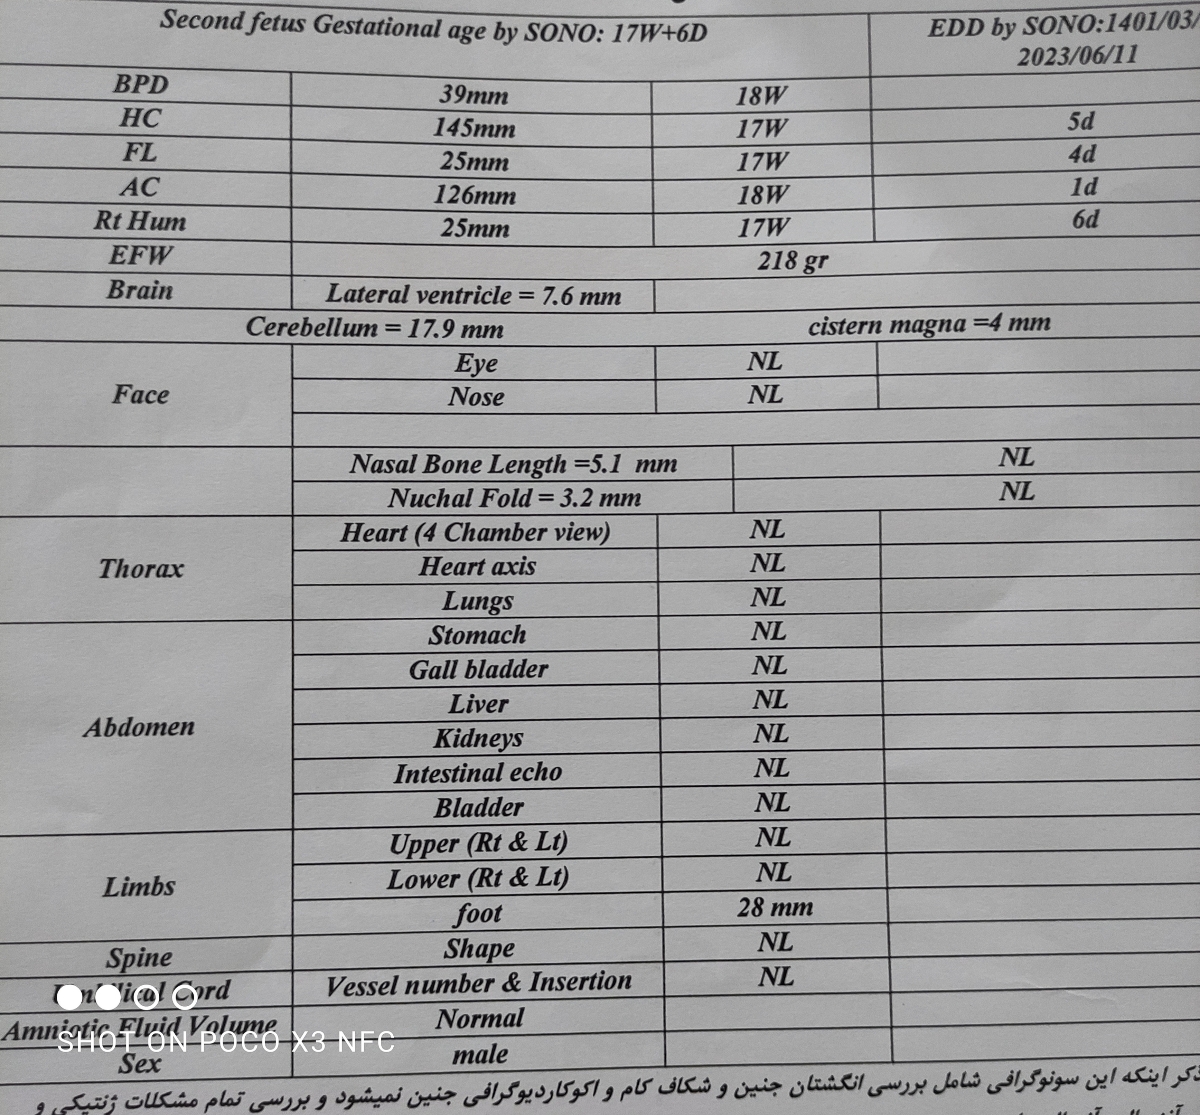 Second fetus Gestational age by SONO: 17W+6D EDD by SONO:1401/03/
2023/06/11
BPD 39mm 18W
HC 145mm 17W 5d
FL 25mm 17W 4d
AC 126mm 18W 1d
Rt Hum 25mm 17W 6d
EFW 218 gr
Brain Lateral ventricle = 7.6 mm
Cerebellum = 17.9 mm cistern magna =4 mm
Face Eye NL
Nose NL
Nasal Bone Length =5.1 mm NL
Nuchal Fold = 3.2 mm NL
Thorax Heart (4 Chamber view) NL
Heart axis NL
Lungs NL
Abdomen Stomach NL
Gall bladder NL
Liver NL
Kidneys NL
Intestinal echo NL
Bladder NL
Limbs Upper (Rt & Lt) NL
Lower (Rt & Lt) NL
foot 28 mm
Spine Shape NL
Umbilical Cord Vessel number & Insertion NL
Amniotic Fluid Volume Normal
SHOT ON POCO X3 NFC
Sex male
ذکر اینکه این سونوگرافی شامل بررسی انگشتان جنین و شکاف کام و اکوکاردیوگرافی جنین نمیشود و بررسی تمام مشکلات ژنتیکی و